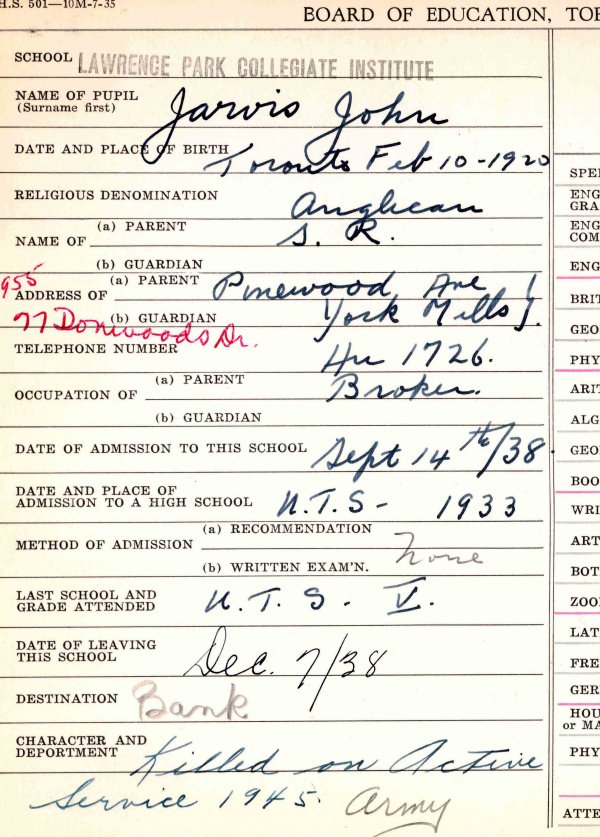 H.S. 501—10M-7-35
BOARD OF EDUCATION, TO
SCHOOL LAWRENCE PARK COLLEGIATE INSTITUTE
NAME OF PUPIL
(Surname first)
Jarvis John
DATE AND PLACE OF BIRTH Toronto Feb 10-1920
RELIGIOUS DENOMINATION Anglican
NAME OF (a) PARENT S. R.
(b) GUARDIAN
955
ADDRESS OF (a) PARENT Pinewood Ave
(b) GUARDIAN York Mills
77 Donwoods Dr.
TELEPHONE NUMBER Hu 1726.
OCCUPATION OF (a) PARENT Broker.
(b) GUARDIAN
DATE OF ADMISSION TO THIS SCHOOL Sept 14th/38.
DATE AND PLACE OF
ADMISSION TO A HIGH SCHOOL U.T.S - 1933
METHOD OF ADMISSION (a) RECOMMENDATION
(b) WRITTEN EXAM'N. none
LAST SCHOOL AND
GRADE ATTENDED U.T.S. V.
DATE OF LEAVING
THIS SCHOOL Dec. 7/38
DESTINATION Bank
CHARACTER AND
DEPORTMENT Killed on Active
Service 1945. Army
SPE
ENG
GRA
ENG
COM
ENG
BRIT
GEO
PHY
ARIT
ALG
GEO
BOO
WRI
ART
BOT
ZOO
LAT
FRE
GER
HOU
or MA
PHY
ATTE